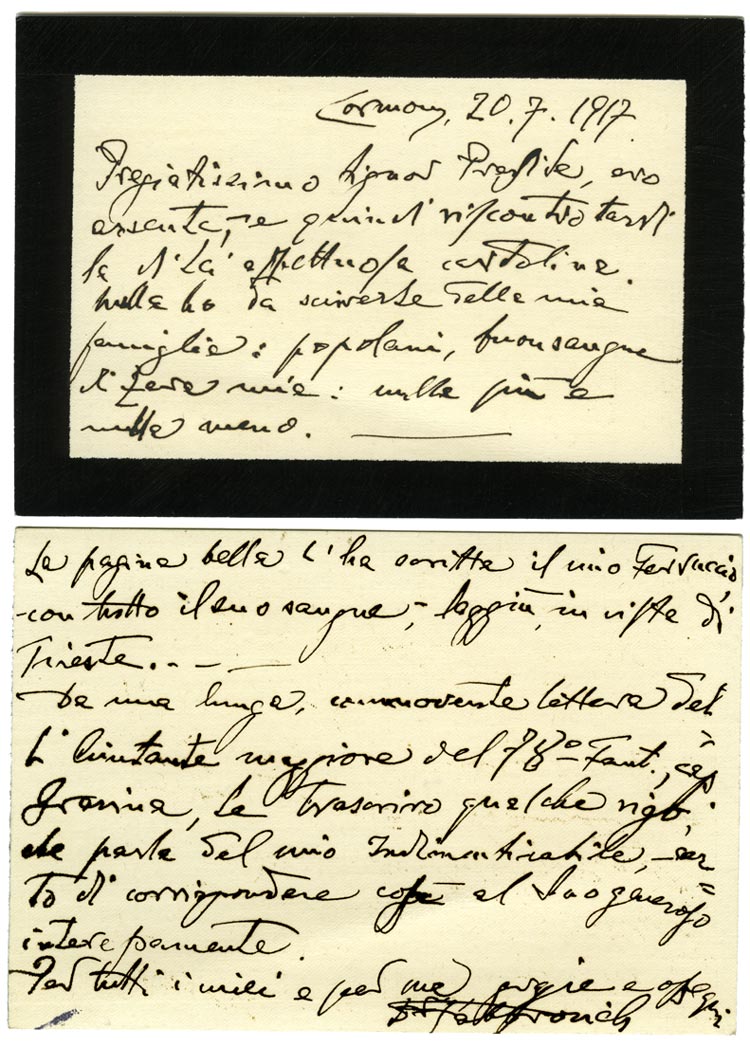 Cormons, 20.7.1917
Pregiatissimo Signor Preside, ero
assente, - e quindi riscontro tardi
la di Lei affettuosa cartolina.
Nulla ho da scriverLe della mia
famiglia: popolani, buon sangue
di Zara mia: nulla più e
nulla meno.
La pagina bella l'ha scritta il mio Ferruccio
- con tutto il suo sangue, - laggiù, in vista di
Trieste. - -
Da una lunga, commovente lettera del
l'Aiutante maggiore del 78º Fant., cap.
Gravina, Le trascrivo qualche rigo,
che parla del mio Indimenticabile, - cer
to di corrispondere così al Suo generoso
interessamento.
Per tutti i miei e per me, grazie e ossequi